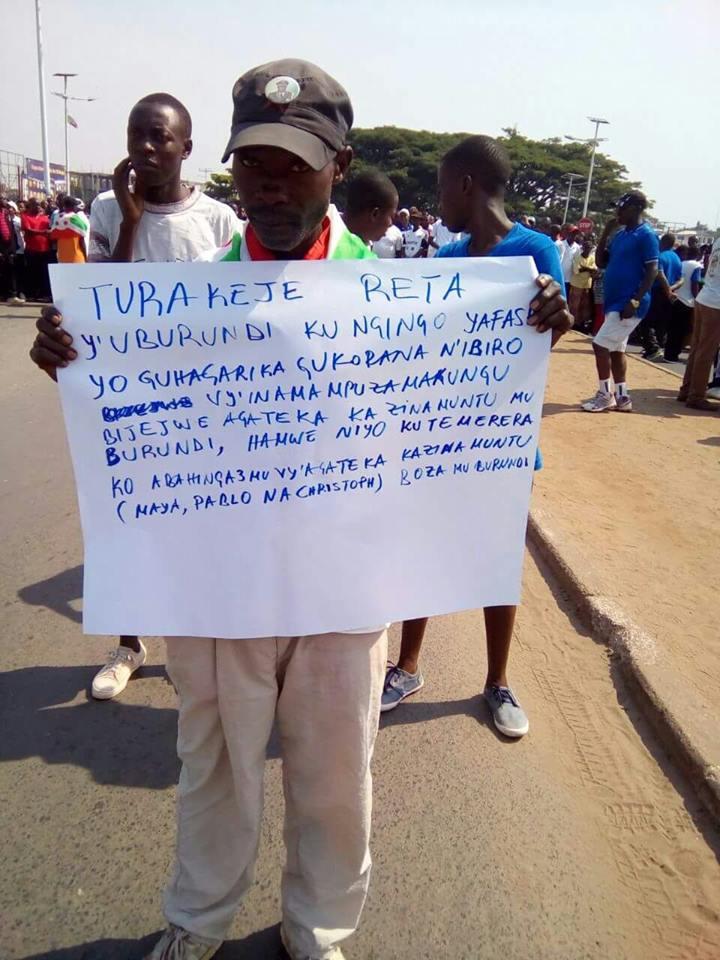 TURAKEJE RETA
Y'UBURUNDI KU NGINGO YAFASE
YO GUHAGARIKA GUKORANA N'IBIRO
VY'INAMA MPUZAMAKUNGU
BIJEJWE AGATEKA KA ZINA MUNTU MU
BURUNDI, HAMWE NIYO KUTEMERERA
KO ABAHINGA3 MU VY'AGATEKA KAZINA MUNTU
(MAYA, PABLO NA CHRISTOPH) BOZA MU BURUNDI
STOP